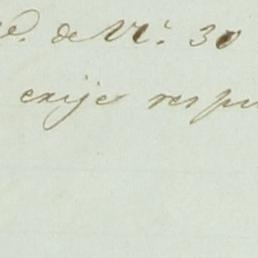 de N.º 30
exije resp